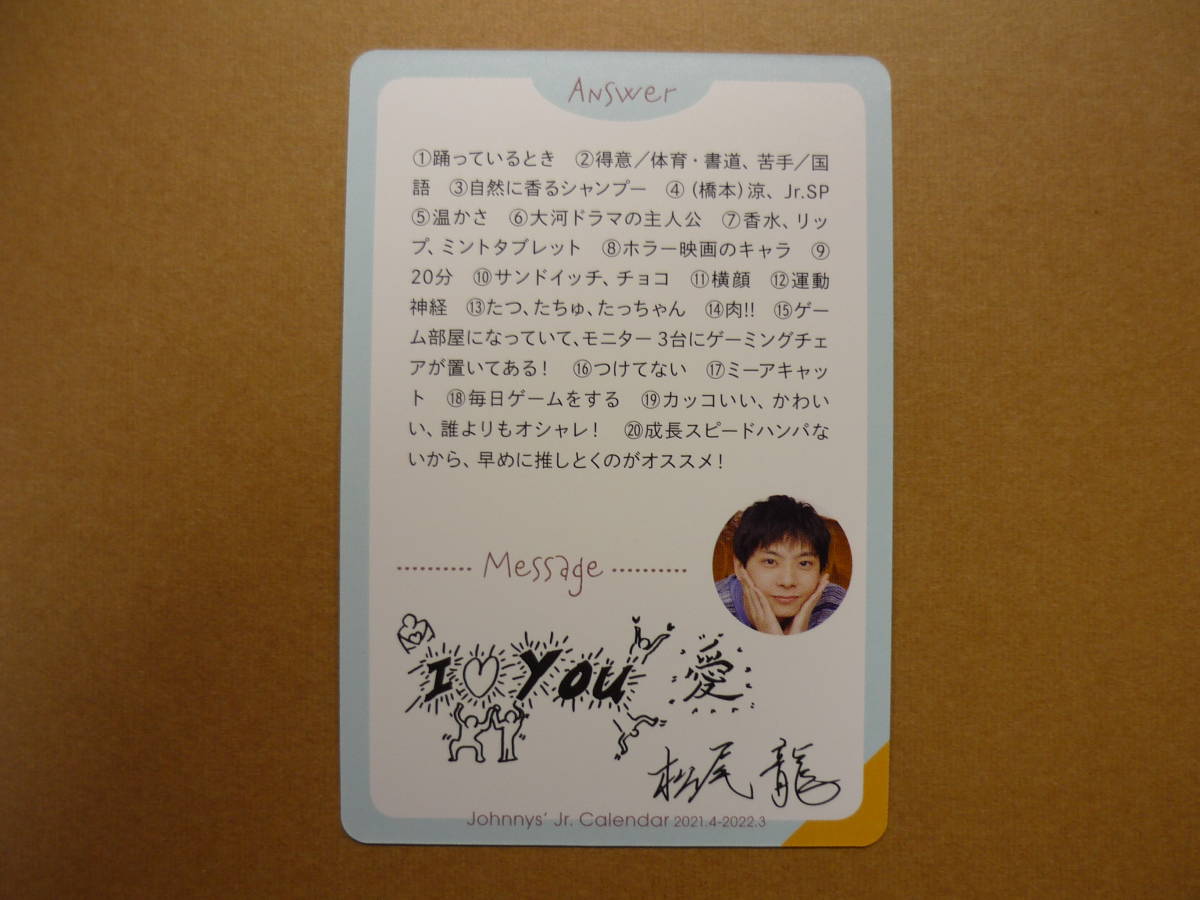 Answer
①踊っているとき　②得意／体育・書道、苦手／国
語　③自然に香るシャンプー　④（橋本）涼、Jr.SP
⑤温かさ　⑥大河ドラマの主人公　⑦香水、リッ
プ、ミントタブレット　⑧ホラー映画のキャラ　⑨
20分　⑩サンドイッチ、チョコ　⑪横顔　⑫運動
神経　⑬たつ、たちゅ、たっちゃん　⑭肉!!　⑮ゲー
ム部屋になっていて、モニター3台にゲーミングチェ
アが置いてある！　⑯つけてない　⑰ミーアキャッ
ト　⑱毎日ゲームをする　⑲カッコいい、かわい
い、誰よりもオシャレ！　⑳成長スピードハンパな
いから、早めに推しとくのがオススメ！
Message
I♡You 愛
松尾龍
Johnnys' Jr. Calendar 2021.4-2022.3